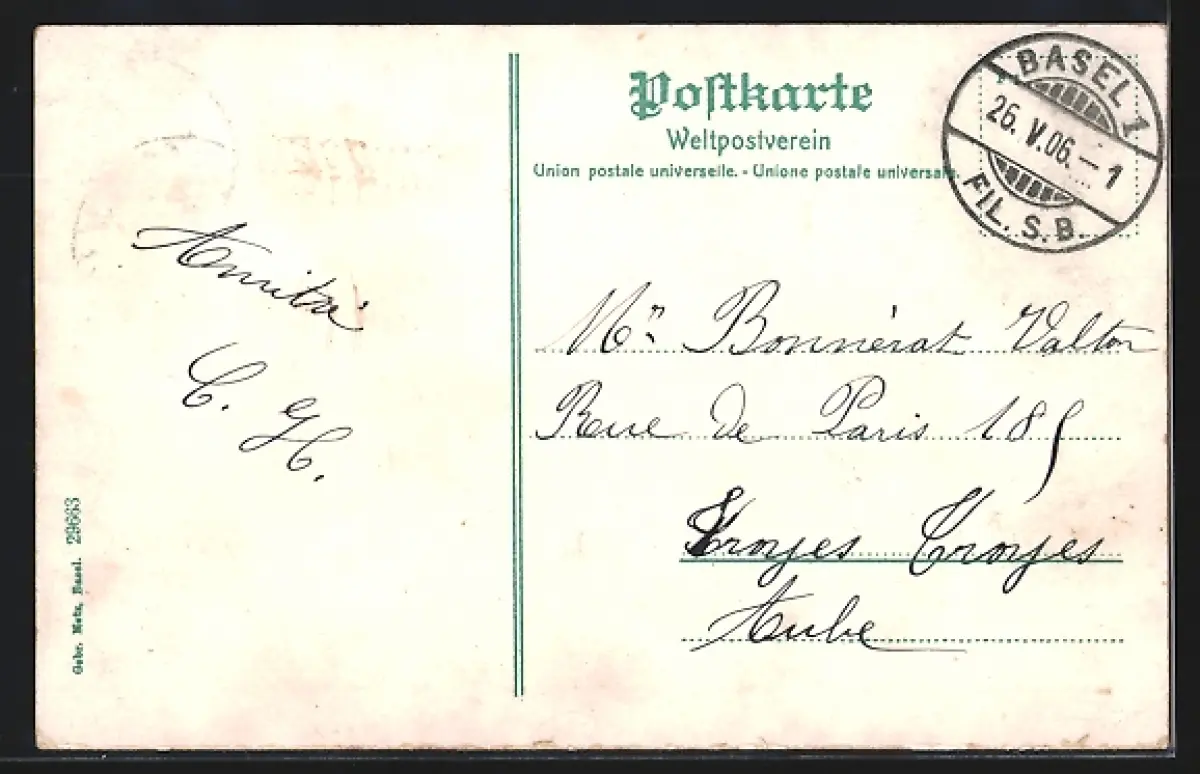 Postkarte
Weltpostverein
Union postale universelle. - Unione postale universale.
BASEL 1
26. V. 06. - 1
FIL. S. B.
C. H.
Mr Bonnérat Valton
Rue de Paris 185
Troyes Troyes
Aube
Gebr. Metz, Basel. 29663